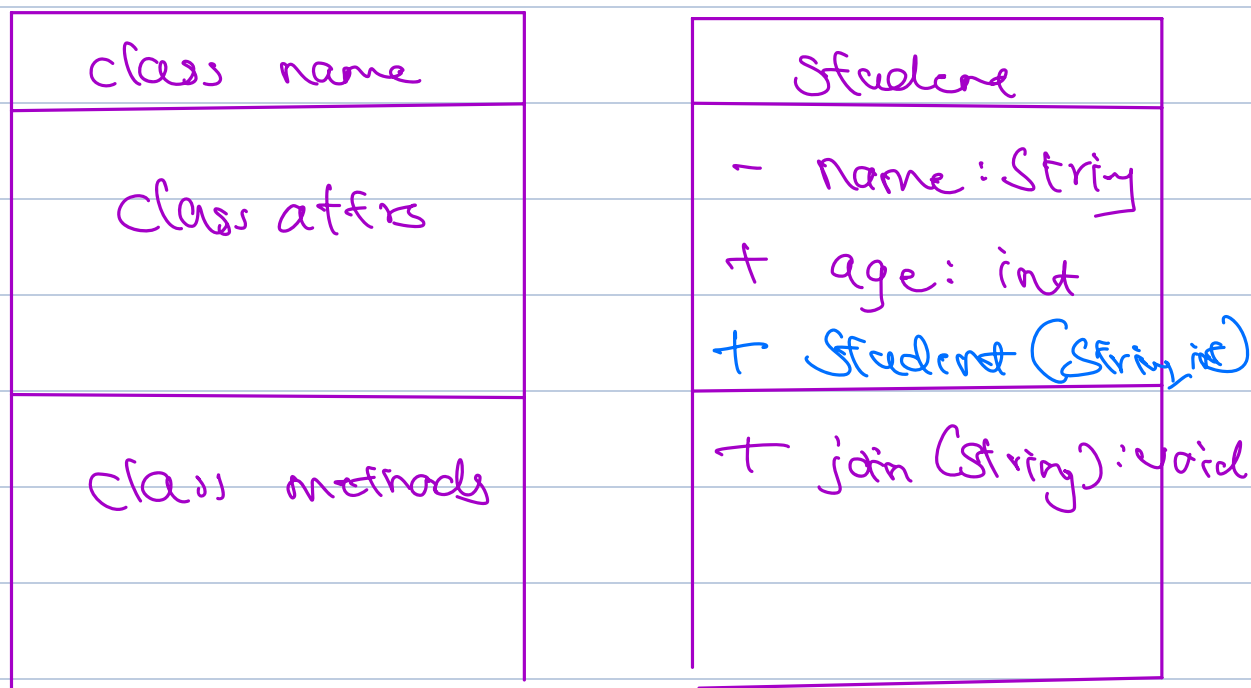 class name
class attrs
class methods
Student
- name: String
+ age: int
+ Student (String, int)
+ join (String): void